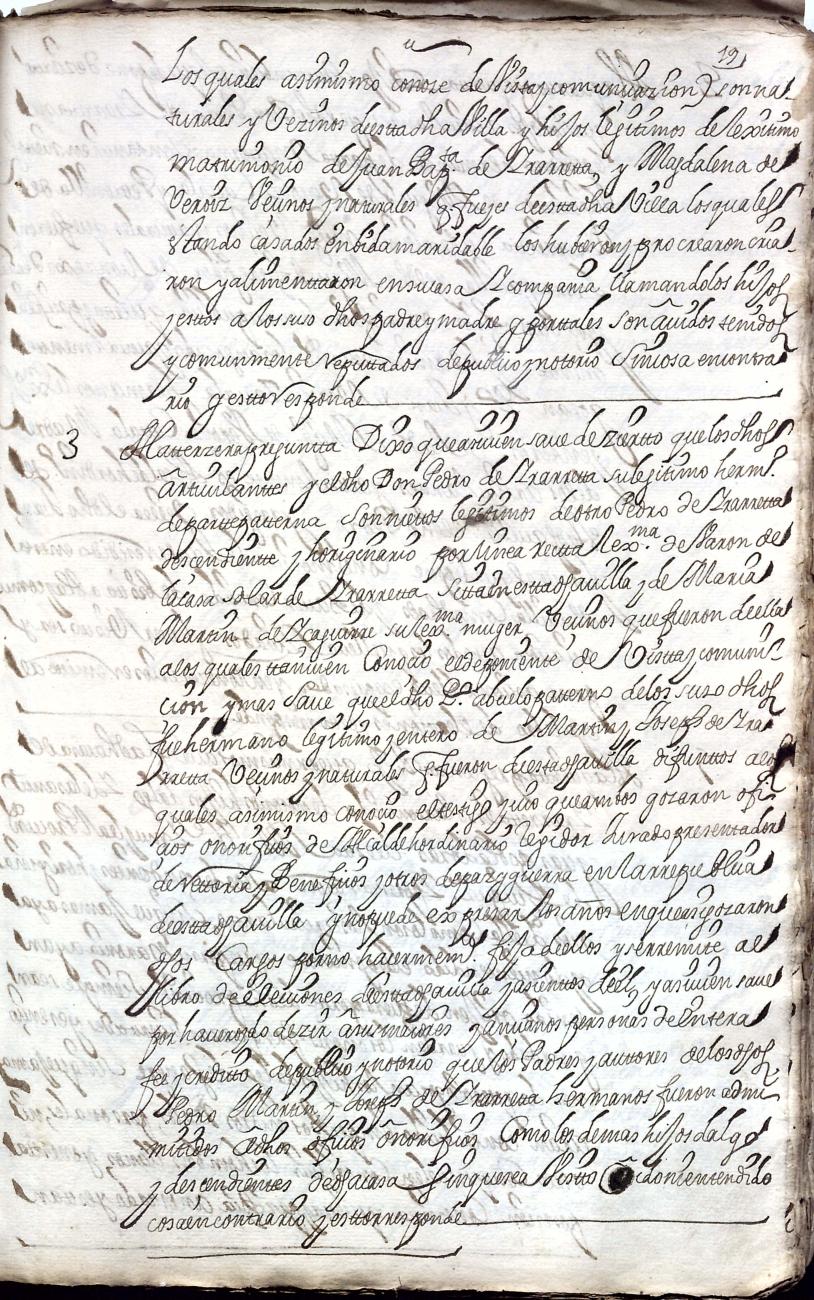 19
Los quales asimismo conoze de Vista y comunicazion) son na-
turales y Vezinos destta dha Villa y hijos legitimos de lexitimo
matrimonio de Juan Bapta de Yrarretta, y Magdalena de
Veroiz Vecinos y naturales q. fueron de estta dha Villa los quales
estando casados en bida maridable los hubieron y procrearon cria-
ron y alimenttaron en su casa y compania llamandolos hijos
y estos a los suso dhos padre y madre y por ttales son auidos tenidos
y comunmente reputtados de publico y notorio sin cosa en contra
rio y estto responde
3 A la tterzera pregunta Dixo que asi vien saue de zierto que los dhos
articulanttes y el dho Don Pedro de Yrarretta su legitimo herm.o
de parte patterna son nietos legitimos de otro Pedro de Yrarretta
descendiente y horiginario por linea recta lexma de Varon de
la casa solar de Yrarretta sitta en estta dha villa y de Maria
Martin de Yzaguirre su lexma muger Vecinos que fueron de ella
a los quales ttanvien Conocio el deponiente de Vista y comuni-
cion y mas saue que el dho P.o abuelo patterno de los suso dhos
fue hermano legitimo y entero de Martin y Joseph de Yra-
rretta Vecinos y naturales q. fueron de esta dha villa difuntos a los
quales asimismo conocio el testigo y vio que ambos gozaron ofi-
cios onorificos de Alcalde hordinario regidor Jurado presentador
de Vettoria y Beneficios y otros de paz y guerra en la rrepublica
de estta dha villa y no puede expresar los años en que asi gozaron
dhos Cargos por no hauer mem.a fija de ellos y se rremite al
libro de elecciones de estta dha villa y asientos de el, y asi vien saue
por hauer oydo dezir a sus maiores y ancianos personas de entera
fee y creditto de publico y notorio que los Padres y auttores de los dhos
Pedro Martin y Joseph de Yrarretta hermanos fueron admi-
mitidos a dhos oficios onorificos Como los demas hijos dalgo
y descendientes de dha casa sin que sea Visto oido ni entendido
cosa en contrario y estto rresponde